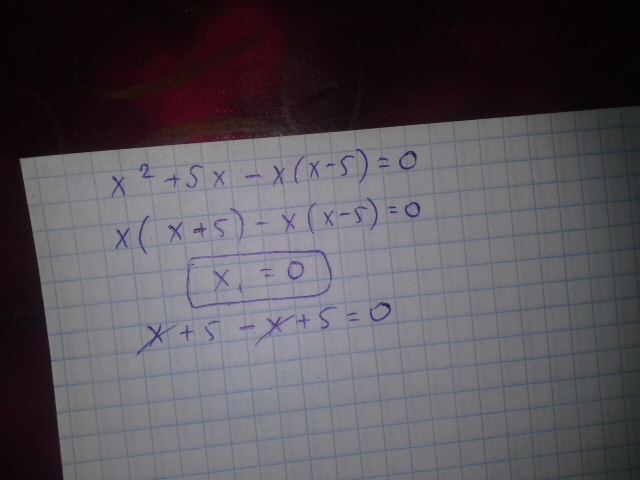 x² + 5x - x(x-5) = 0
x( x+5) - x(x-5) = 0
x₁ = 0
x + 5 - x + 5 = 0